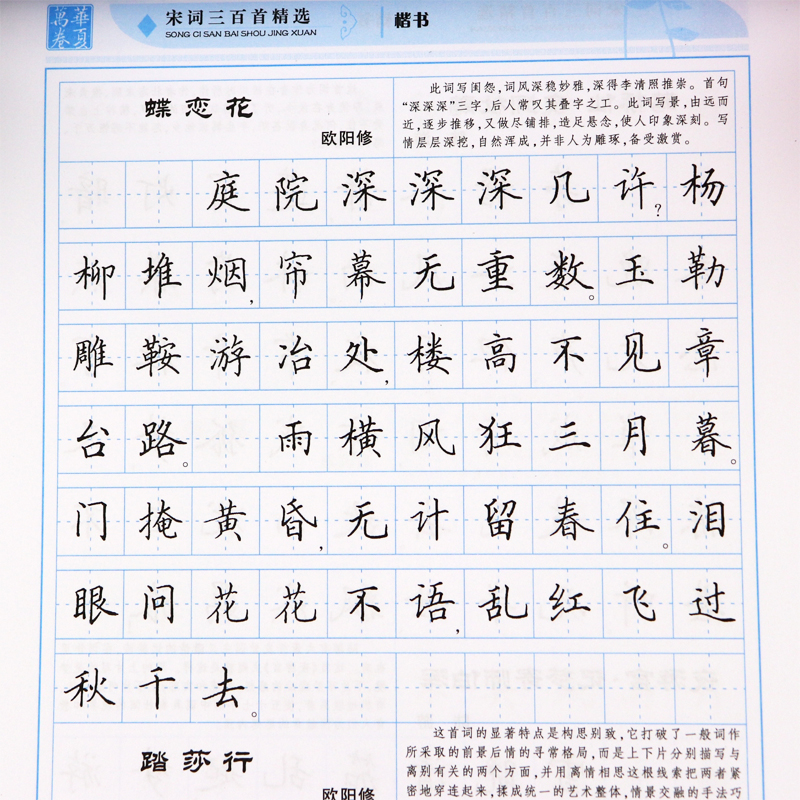 華夏萬卷
宋词三百首精选
SONG CI SAN BAI SHOU JING XUAN
楷书
蝶恋花
欧阳修
此词写闺怨,词风深稳妙雅,深得李清照推崇。首句
“深深深”三字,后人常叹其叠字之工。此词写景,由远而
近,逐步推移,又做尽铺排,造足悬念,使人印象深刻。写
情层层深挖,自然浑成,并非人为雕琢,备受激赏。
庭院深深深几许?杨
柳堆烟,帘幕无重数。玉勒
雕鞍游冶处,楼高不见章
台路。雨横风狂三月暮。
门掩黄昏,无计留春住。泪
眼问花花不语,乱红飞过
秋千去。
踏莎行
欧阳修
这首词的显著特点是构思别致,它打破了一般词作
所采取的前景后情的寻常格局,而是上下片分别描写与
离别有关的两个方面,并用离情相思这根线索把两者紧
密地穿连起来,揉成统一的艺术整体,情景交融的手法巧